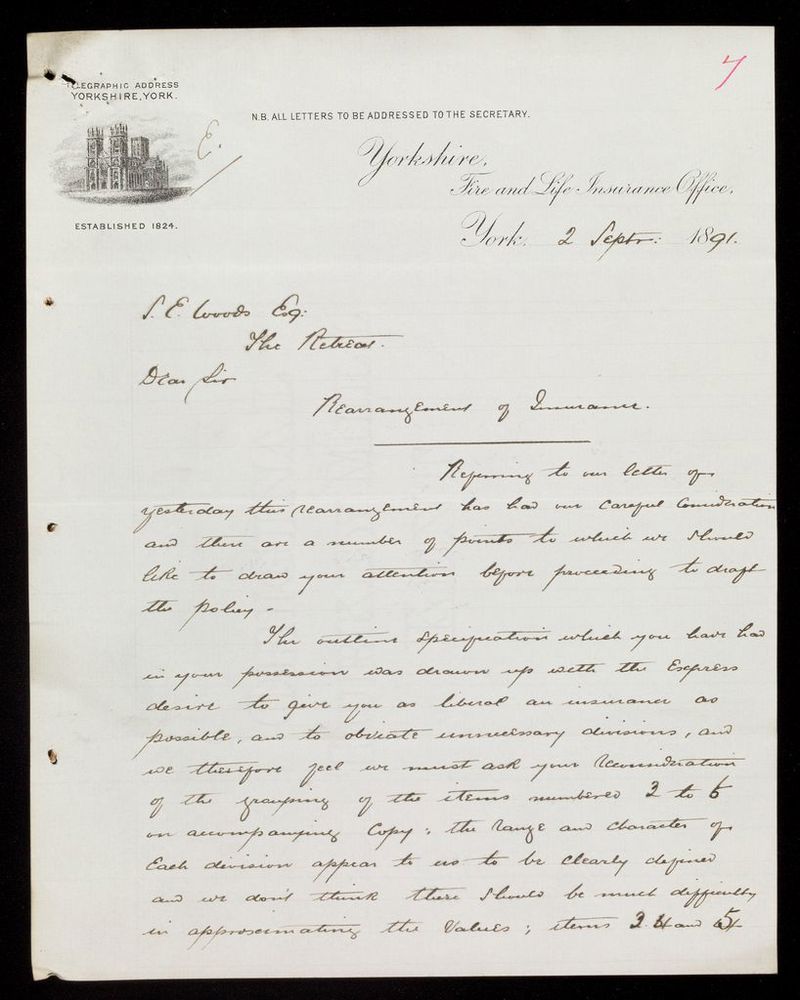 7
TELEGRAPHIC ADDRESS
YORKSHIRE, YORK.
N.B. ALL LETTERS TO BE ADDRESSED TO THE SECRETARY.
E.
Yorkshire,
Fire and Life Insurance Office,
ESTABLISHED 1824.
York, 2 Septr: 1891.
S. E. Woods Esq:
The Retreat.
Dear Sir
Rearrangement of Insurance.
Referring to our letter of
yesterday this rearrangement has had our careful Consideration
and there are a number of points to which we should
like to draw your attention before proceeding to draft
the policy -
The outline specification which you have had
in your possession was drawn up with the Express
desire to give you as liberal an insurance as
possible, and to obviate unnecessary divisions, and
we therefore feel we must ask your Reconsideration
of the grouping of the items numbered 3 to 6
on accompanying Copy; the range and character of
Each division appear to us to be clearly defined
and we don't think there should be much difficulty
in approximating the Values; items 3 4 and 5